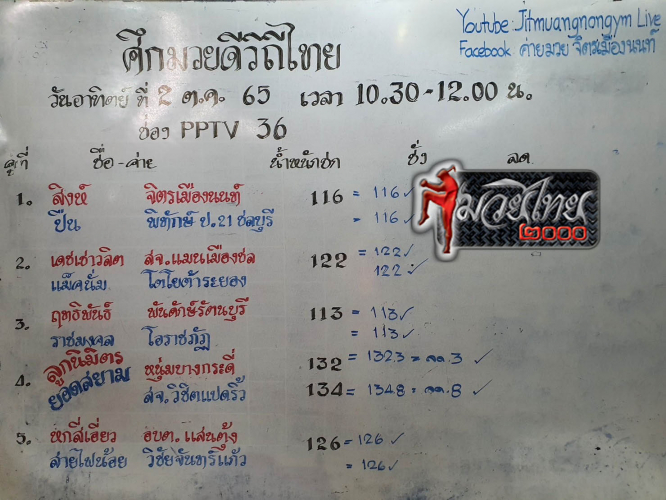 Youtube: Jitmuangnongym Live
Facebook ค่ายมวย จิตรเมืองนนท์
ศึกมวยดีวิถีไทย
วันอาทิตย์ ที่ 2 ต.ค. 65 เวลา 10.30-12.00 น.
ช่อง PPTV 36
คู่ที่ ชื่อ-ค่าย น้ำหนักชก ชั่ง ลด
1. สิงห์ จิตรเมืองนนท์ 116 = 116 ✓
ปืน พิทักษ์ ป.21 ชลบุรี = 116 ✓
มวยไทย
๒๐๐๐
2. เดชเชาวลิต สจ.แมนเมืองชล 122 = 122 ✓
แม็คนั่ม โตโยต้าระยอง 122 ✓
3. ฤทธิพันธ์ พันศักษ์รัตนบุรี 113 = 113 ✓
ราชมงคล โอราชภัฏ = 113 ✓
4. ลูกนิมิตร หนุ่มบางกระดี่ 132 = 132.3 = ลด.3 ✓
ยอดสยาม สจ.วิชิตแปดริ้ว 134 = 134.8 = ลด.8 ✓
5. หกสี่เอี่ยว อบต.แสนตุ้ง 126 = 126 ✓
สายไฟน้อย วิชัยจันทร์แก้ว = 126 ✓